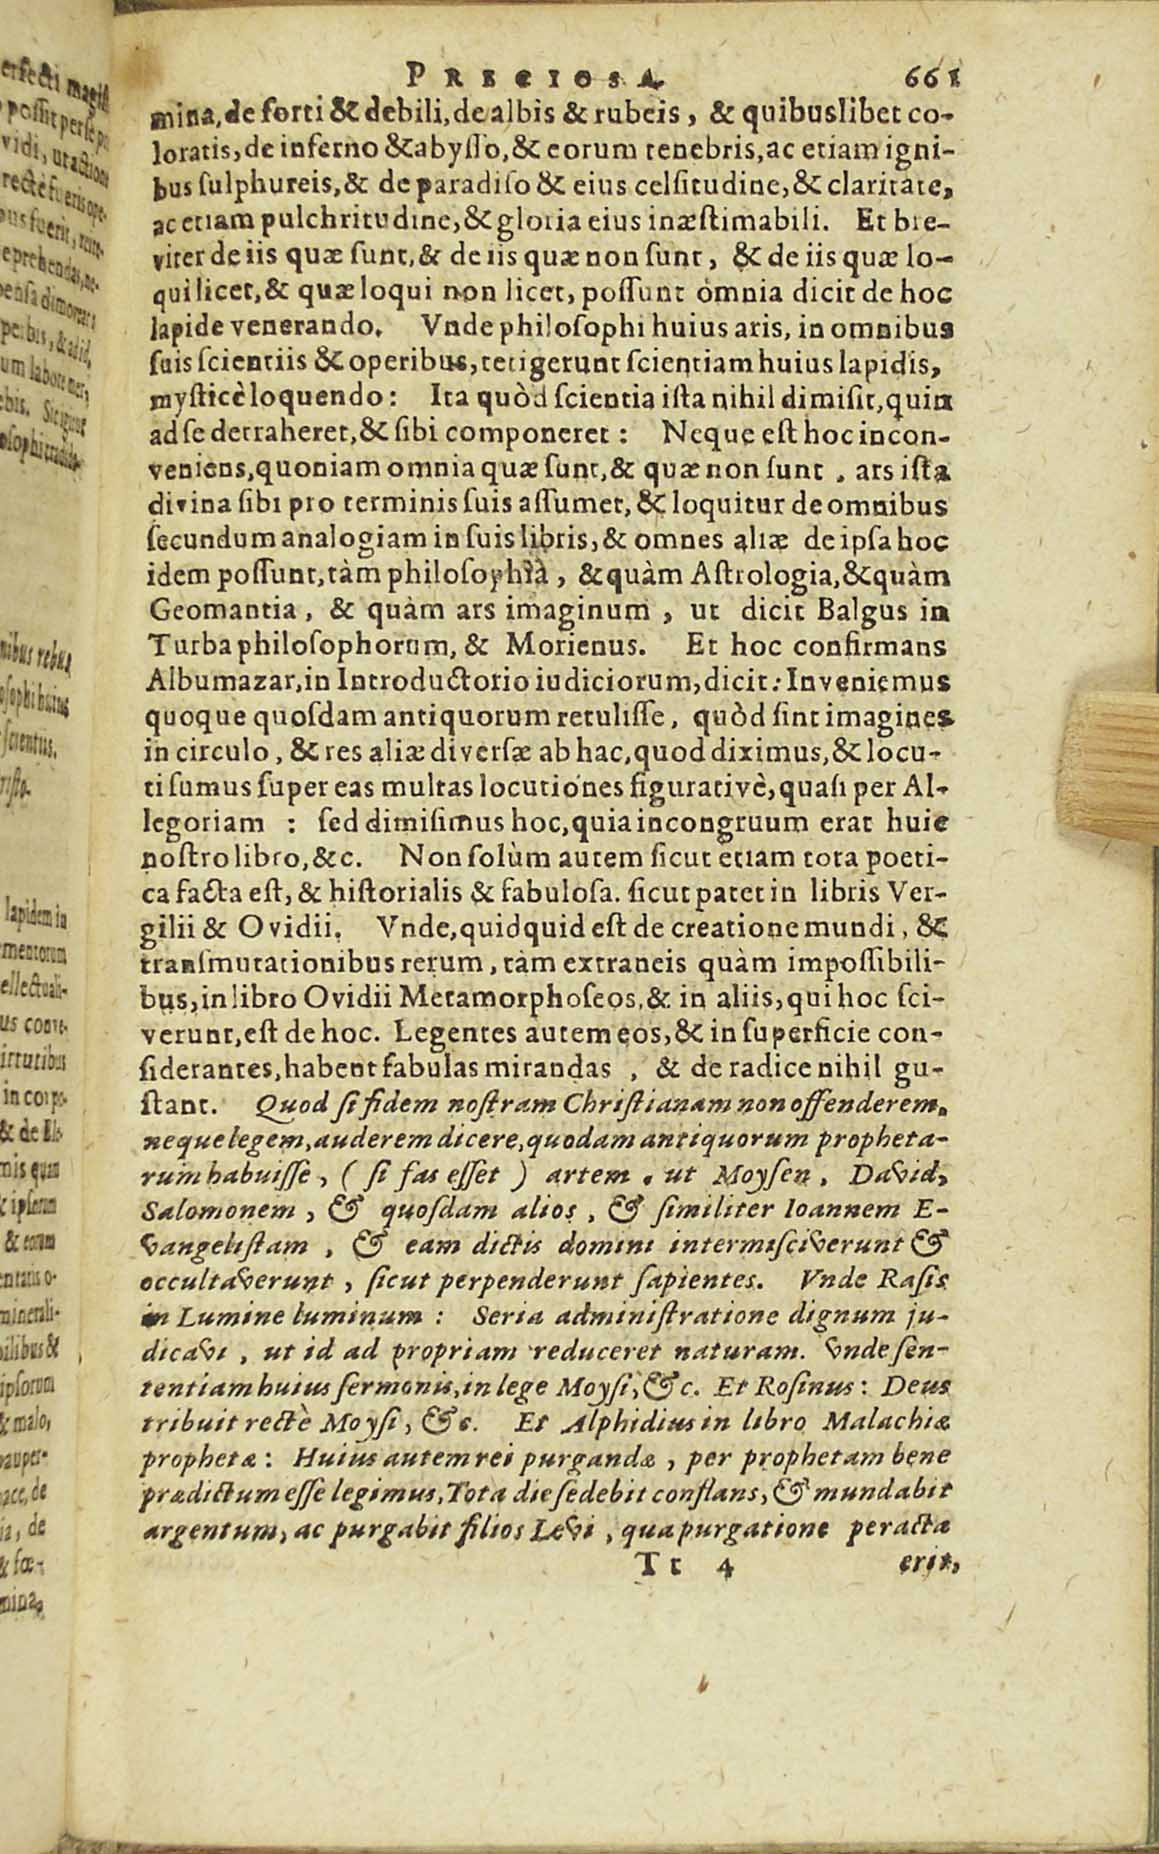 PRECIOSA 661
mina, de forti & debili, de albis & rubeis, & quibuslibet co-
loratis, de inferno & abysso, & eorum tenebris, ac etiam igni-
bus sulphureis, & de paradiso & eius celsitudine, & claritate,
ac etiam pulchritudine, & gloria eius inæstimabili. Et bre-
viter de iis quæ sunt, & de iis quæ non sunt, & de iis quæ lo-
qui licet, & quæ loqui non licet, possunt omnia dicit de hoc
lapide venerando. Vnde philosophi huius aris, in omnibus
suis scientiis & operibus, tetigerunt scientiam huius lapidis,
mysticè loquendo: Ita quòd scientia ista nihil dimisit, quin
ad se detraheret, & sibi componeret: Neque est hoc incon-
veniens, quoniam omnia quæ sunt, & quæ non sunt, ars ista
divina sibi pro terminis suis assumet, & loquitur de omnibus
secundum analogiam in suis libris, & omnes aliæ de ipsa hoc
idem possunt, tàm philosophia, & quàm Astrologia, & quàm
Geomantia, & quàm ars imaginum, ut dicit Balgus in
Turba philosophorum, & Morienus. Et hoc confirmans
Albumazar, in Introductorio iudiciorum, dicit: Inveniemus
quoque quosdam antiquorum retulisse, quòd sint imagines
in circulo, & res aliæ diversæ ab hac, quod diximus, & locu-
ti sumus super eas multas locutiones figurativè, quasi per Al-
legoriam : sed dimisimus hoc, quia incongruum erat huic
nostro libro, &c. Non solùm autem sicut etiam tota poeti-
ca facta est, & historialis & fabulosa. sicut patet in libris Ver-
gilii & Ovidii. Vnde, quidquid est de creatione mundi, &
transmutationibus rerum, tàm extraneis quàm impossibili-
bus, in libro Ovidii Metamorphoseos, & in aliis, qui hoc sci-
verunt, est de hoc. Legentes autem eos, & in superficie con-
siderantes, habent fabulas mirandas, & de radice nihil gu-
stant. Quod si fidem nostram Christianam non offenderem,
neque legem, auderem dicere, quodam antiquorum propheta-
rum habuisse, ( si fas esset ) artem. ut Moysen, David,
Salomonem, & quosdam alios, & similiter Ioannem E-
vangelistam, & eam dictis domini intermisciverunt &
occultaverunt, sicut perpenderunt sapientes. Vnde Rasis
in Lumine luminum : Seria administratione dignum ju-
dicavi, ut id ad propriam reduceret naturam. vnde sen-
tentiam huius sermonis, in lege Moysi, &c. Et Rosinus: Deus
tribuit rectè Moysi, &c. Et Alphidius in libro Malachiæ
prophetæ: Huius autem rei purgandæ, per prophetam bene
prædictum esse legimus, Tota die sedebit conflans, & mundabit
argentum, ac purgabit filios Levi, qua purgatione peracta
Tt 4 erit,